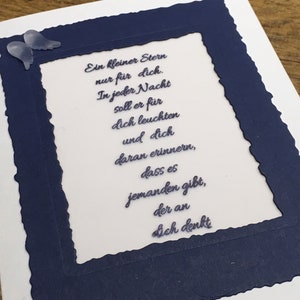 Ein kleiner Stern
nur für dich.
In jeder Nacht
soll er für
dich leuchten
und dich
daran erinnern,
dass es
jemanden gibt,
der an
dich denkt.